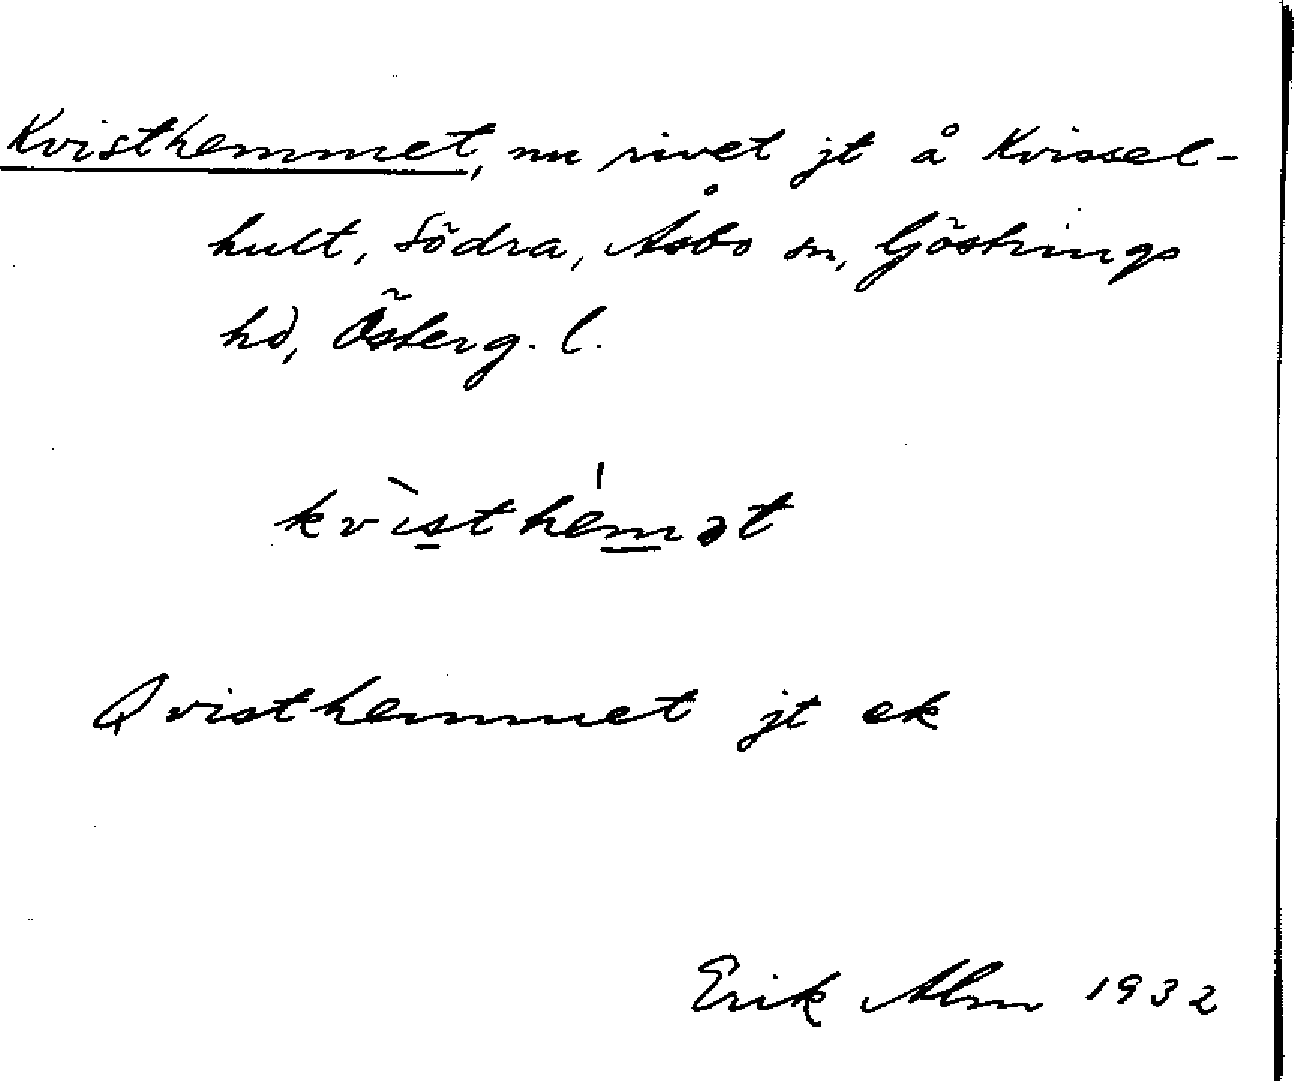 Kvisthemmet, nu rivet jt å Kvissel-
hult, Södra, Åsbo sn, Göstrings
hd, Österg. l.
kvìsthémət
Qvisthemmet jt ek
Erik Alm 1932